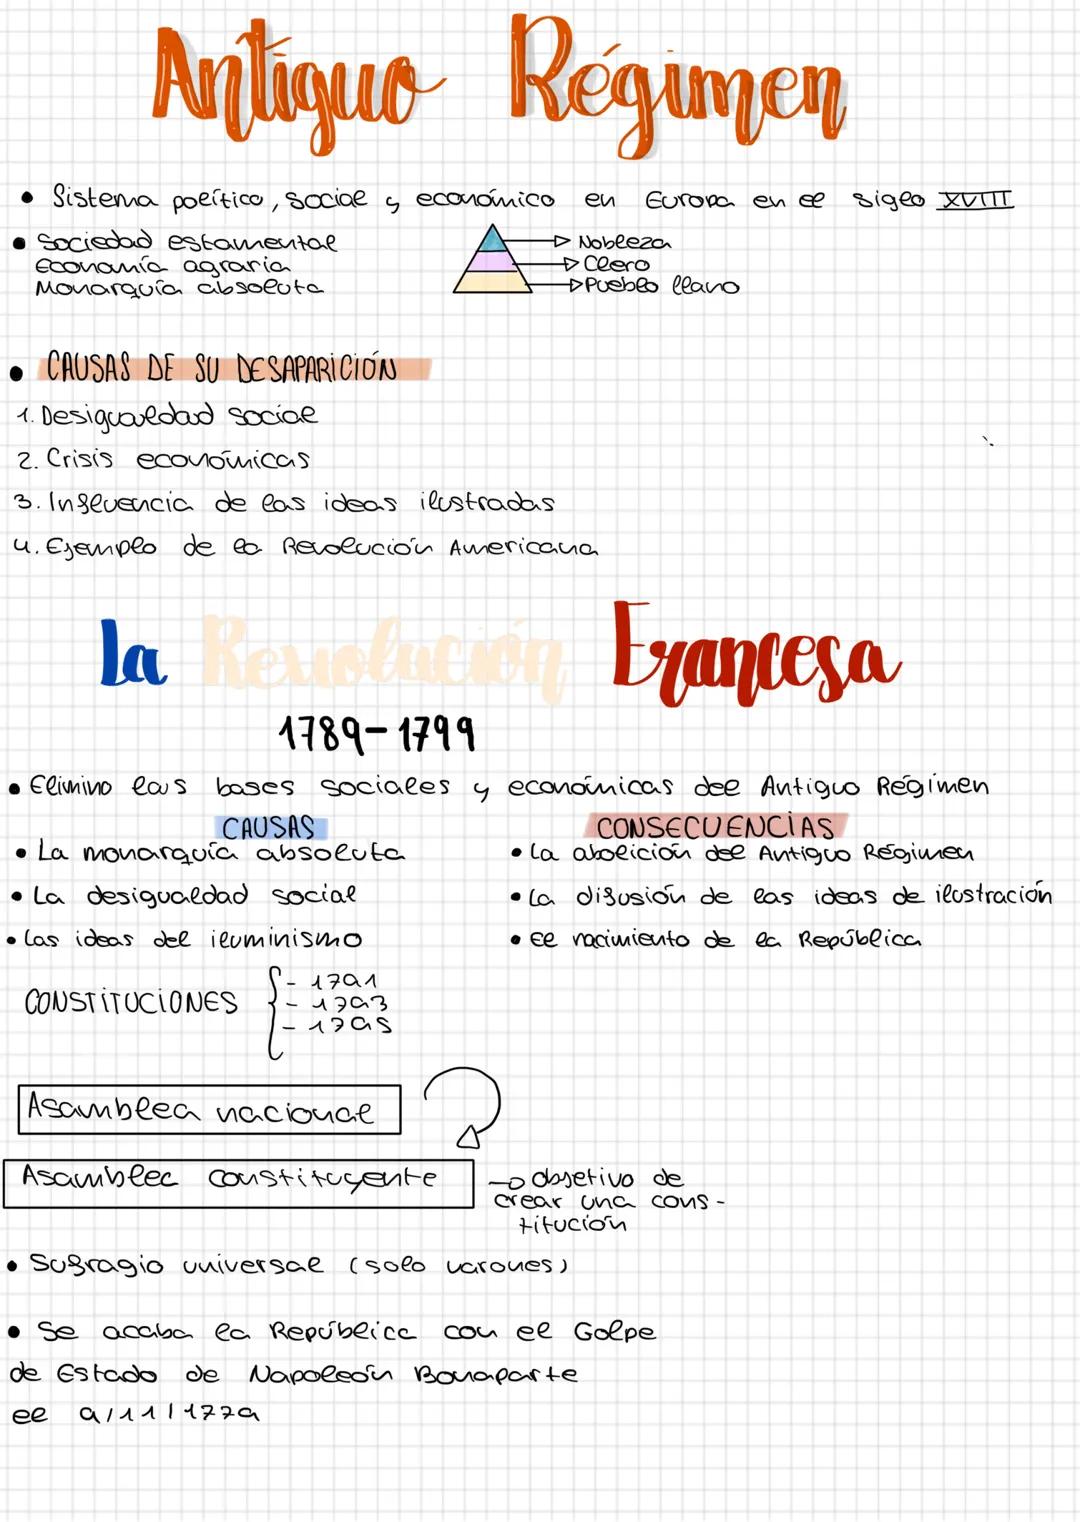 Antiguo Régimen
• Sistema político, social y económico en Europa en el siglo XVIII
• Sociedad estamental
Economía agraria
Monarquía absoluta
Nobleza
Clero
Pueblo llano
• CAUSAS DE SU DESAPARICIÓN
1. Desigualdad social
2. Crisis económicas
3. Influencia de las ideas ilustradas
4. Ejemplo de la Revolución Americana
La Revolución Francesa
1789-1799
• Elimino las bases sociales y económicas del Antiguo Régimen
CAUSAS
• La monarquía absoluta
• La desigualdad social
• Las ideas del iluminismo
CONSECUENCIAS
• La abolición del Antiguo Régimen
• La difusión de las ideas de ilustración
• El nacimiento de la República
CONSTITUCIONES
- 1791
- 1793
- 1795
Asamblea nacional
Asamblea constituyente
→ objetivo de
crear una cons-
titución
• Sufragio universal (solo varones)
• Se acaba la República con el Golpe
de Estado de Napoleón Bonaparte
el 9/11/1779